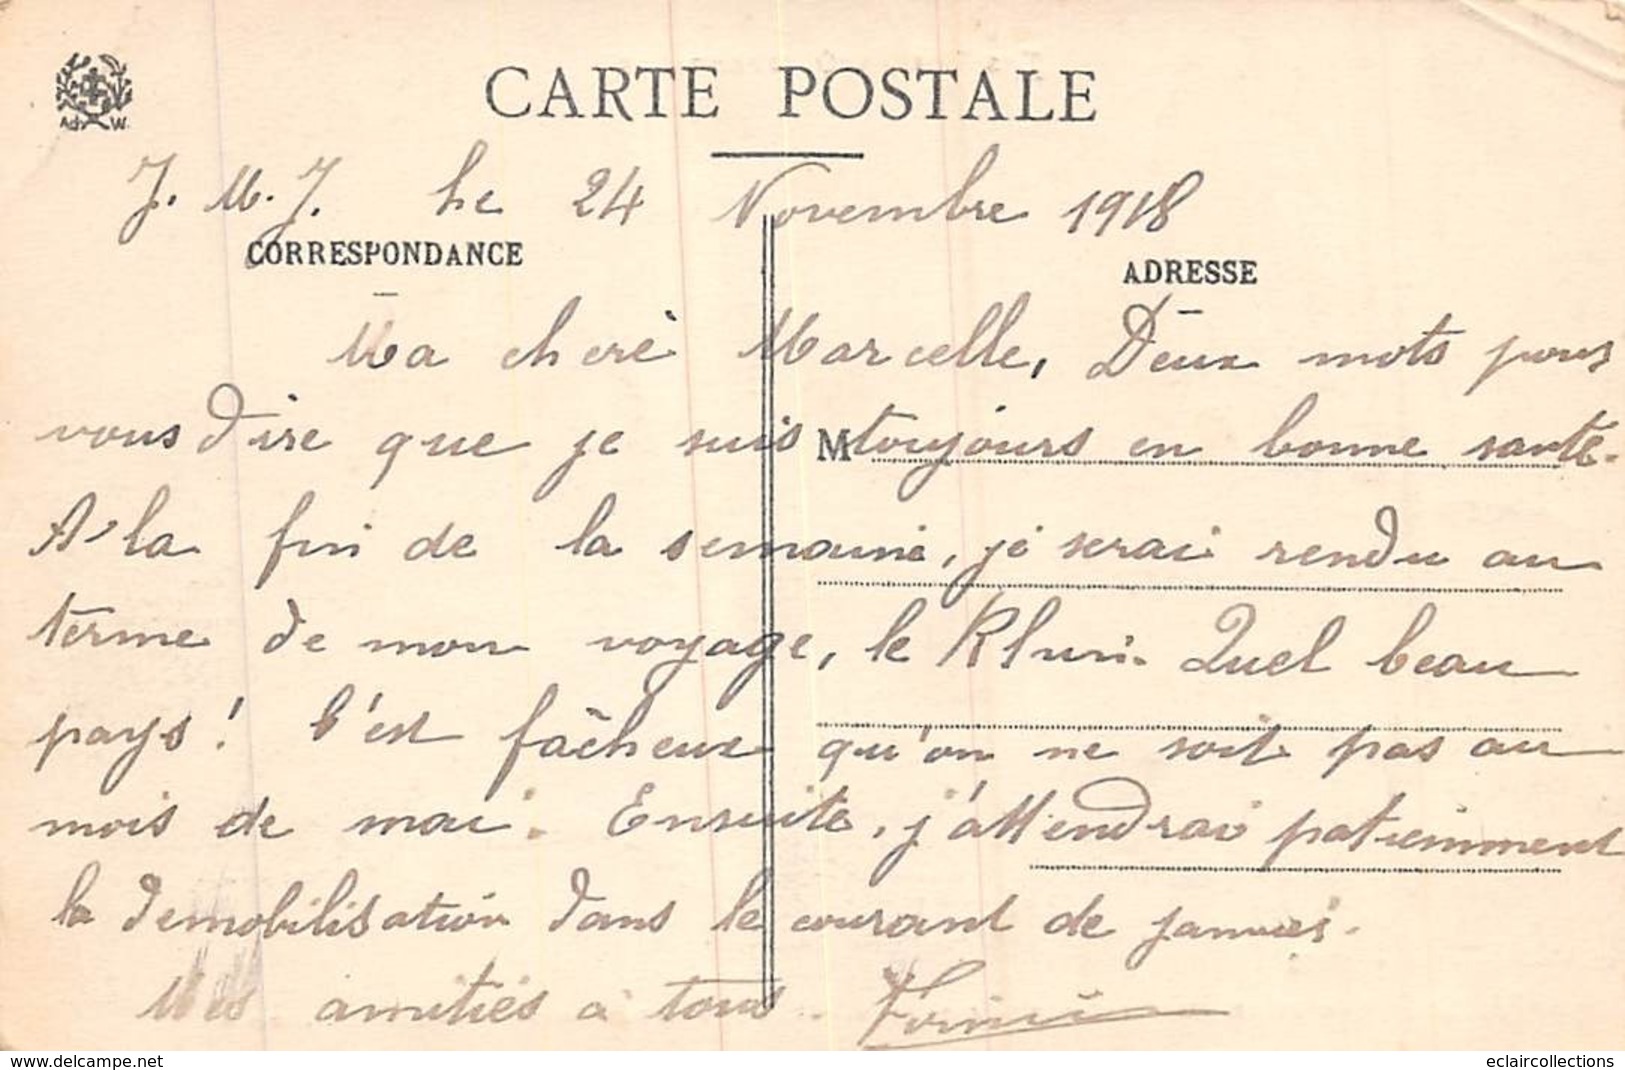 CARTE POSTALE
Ad. W.
J. M. J. Le 24 Novembre 1918
CORRESPONDANCE
ADRESSE
Ma chère Marcelle, Deux mots pour
vous dire que je suis M toujours en bonne santé.
A la fin de la semaine, je serai rendu au
terme de mon voyage, le Rhin. Quel beau
pays! C'est fâcheux qu'on ne soit pas au
mois de mai. Ensuite, j'attendrai patiemment
la démobilisation dans le courant de janvier.
Mes amitiés à tous.
www.delcampe.net
eclaircollections